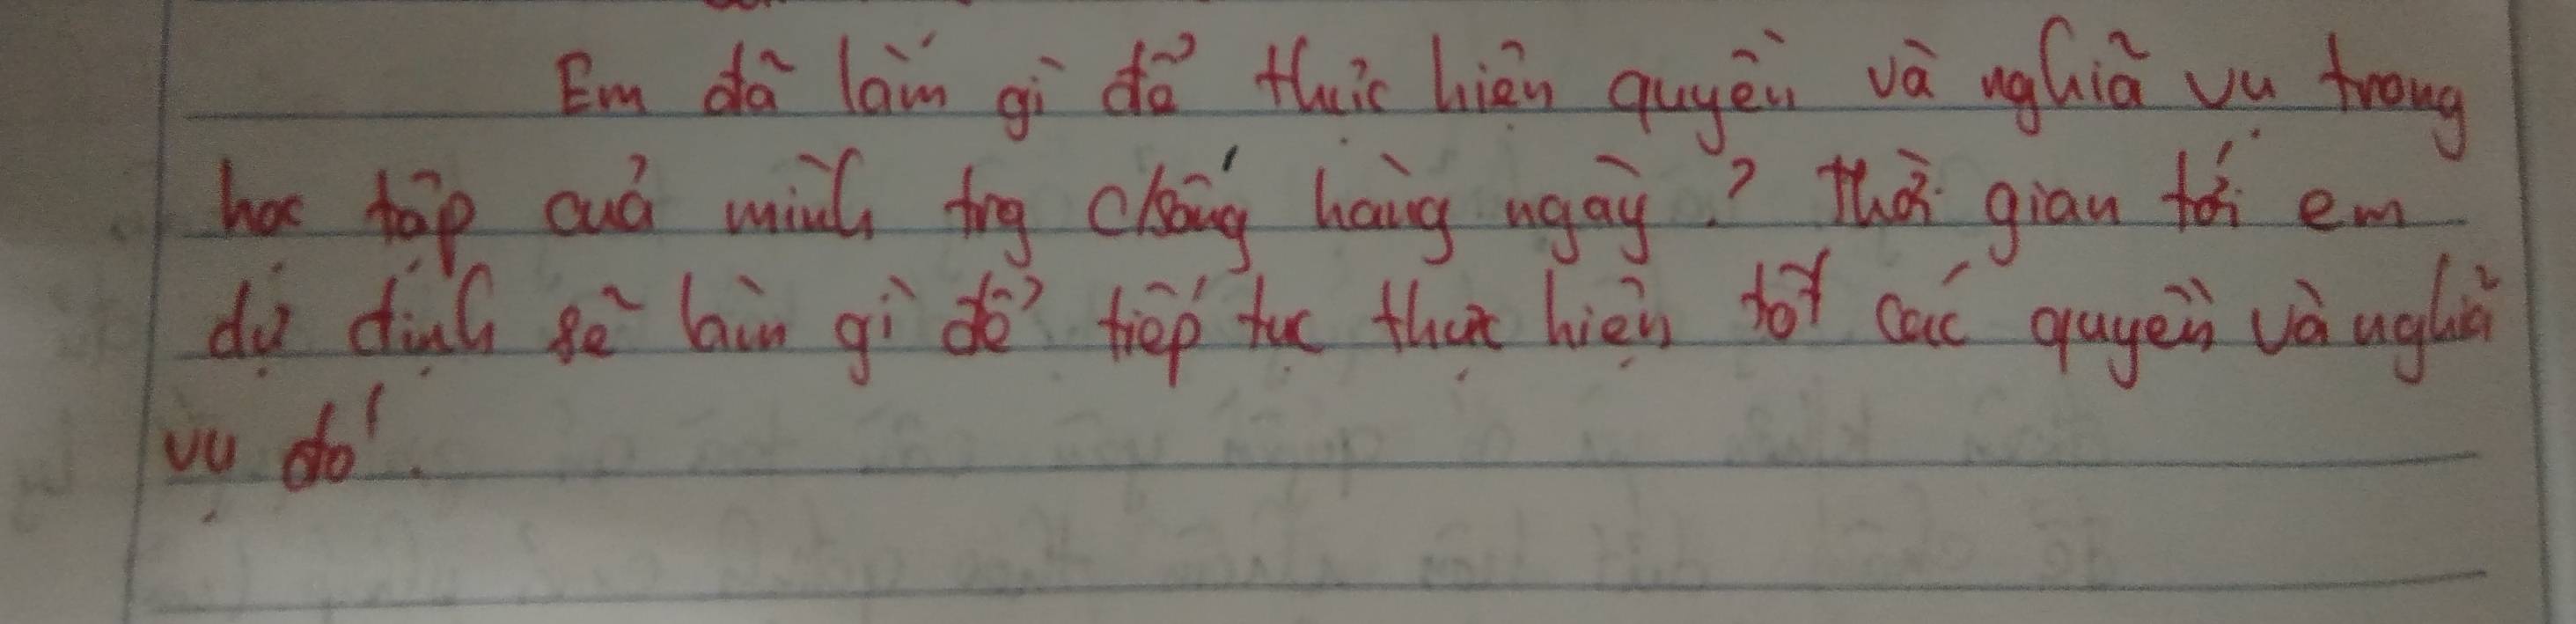 Em đã làm gì để thực hiện quyền và nghĩa vụ trong
học tập của mình trg csống hàng ngày? Thời gian tới em
dự định sẽ làm gì để tiếp tục thực hiện tốt các quyền và nghĩa
vụ đó.